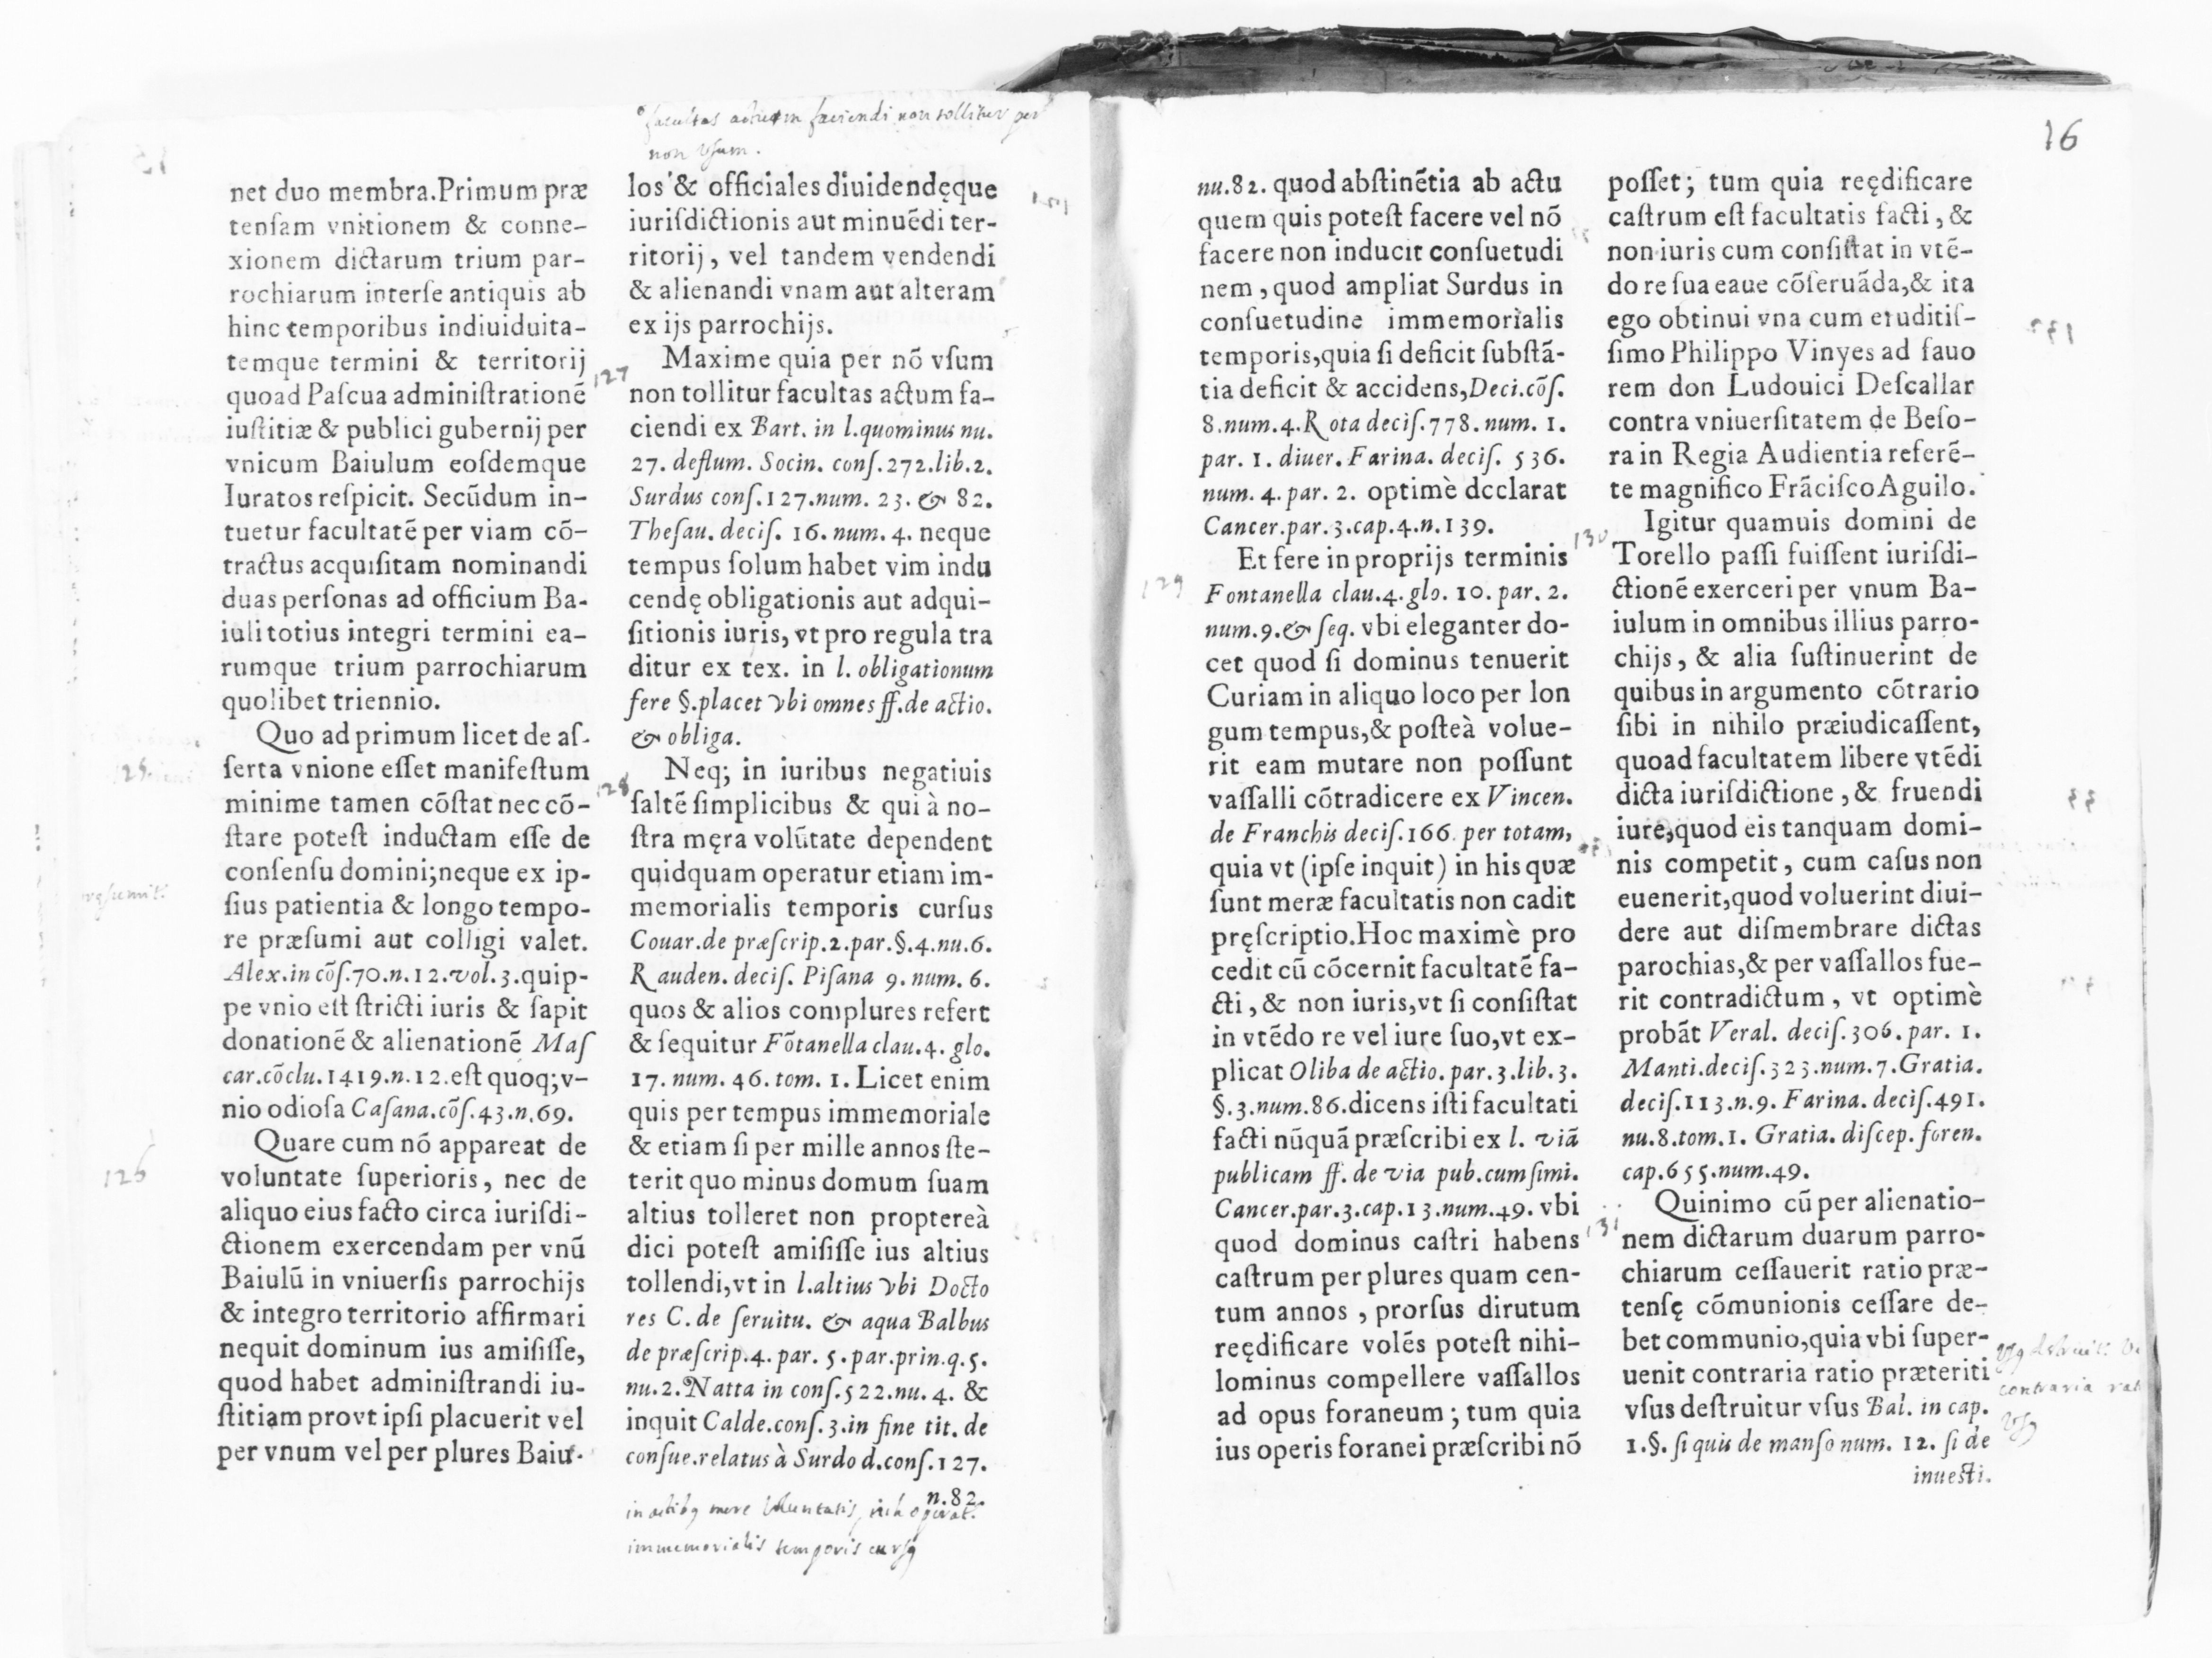 facultas actum faciendi non tollitur per
non vsum.
net duo membra.Primum præ
tenſam vnitionem & conne-
xionem dictarum trium par-
rochiarum interſe antiquis ab
hinc temporibus indiuiduita-
temque termini & territorij
quoad Paſcua adminiſtrationẽ
iuſtitiæ & publici gubernij per
vnicum Baiulum eoſdemque
Iuratos reſpicit. Secũdum in-
tuetur facultatẽ per viam cõ-
tractus acquiſitam nominandi
duas perſonas ad officium Ba-
iuli totius integri termini ea-
rumque trium parrochiarum
quolibet triennio.
Quo ad primum licet de aſ-
ſerta vnione eſſet manifeſtum
minime tamen cõſtat nec cõ-
ſtare poteſt inductam eſſe de
conſenſu domini;neque ex ip-
ſius patientia & longo tempo-
re præſumi aut colligi valet.
Alex.in cõſ.70.n.12.vol.3.quip-
pe vnio eſt ſtricti iuris & ſapit
donationẽ & alienationẽ Maſ
car.cõclu.1419.n.12.eſt quoq;v-
nio odioſa Caſana.cõſ.43.n.69.
126
Quare cum nõ appareat de
voluntate ſuperioris, nec de
aliquo eius facto circa iuriſdi-
ctionem exercendam per vnũ
Baiulũ in vniuerſis parrochijs
& integro territorio affirmari
nequit dominum ius amiſiſſe,
quod habet adminiſtrandi iu-
ſtitiam provt ipſi placuerit vel
per vnum vel per plures Baiu-
los & officiales diuidendęque
iuriſdictionis aut minuẽdi ter-
ritorij, vel tandem vendendi
& alienandi vnam aut alteram
ex ijs parrochijs.
127
Maxime quia per nõ vſum
non tollitur facultas actum fa-
ciendi ex Bart. in l.quominus nu.
27. deflum. Socin. conſ.272.lib.2.
Surdus conſ.127.num. 23. & 82.
Theſau. deciſ. 16. num. 4. neque
tempus ſolum habet vim indu
cendę obligationis aut adqui-
ſitionis iuris, vt pro regula tra
ditur ex tex. in l. obligationum
fere §.placet vbi omnes ff.de actio.
& obliga.
128
Neq; in iuribus negatiuis
ſaltẽ ſimplicibus & qui à no-
ſtra męra volũtate dependent
quidquam operatur etiam im-
memorialis temporis curſus
Couar.de præſcrip.2.par.§.4.nu.6.
Rauden. deciſ. Piſana 9. num. 6.
quos & alios complures refert
& ſequitur Fõtanella clau.4. glo.
17. num. 46. tom. 1. Licet enim
quis per tempus immemoriale
& etiam ſi per mille annos ſte-
terit quo minus domum ſuam
altius tolleret non proptereà
dici poteſt amiſiſſe ius altius
tollendi,vt in l.altius vbi Docto
res C. de ſeruitu. & aqua Balbus
de præſcrip.4. par. 5.par.prin.q.5.
nu.2.Natta in conſ.522.nu. 4. &
inquit Calde.conſ.3.in fine tit. de
conſue.relatus à Surdo d.conſ.127.
n.82.
immemorialis temporis
16
nu.82. quod abſtinẽtia ab actu
quem quis poteſt facere vel nõ
facere non inducit conſuetudi
nem, quod ampliat Surdus in
conſuetudine immemorialis
temporis,quia ſi deficit ſubſtã-
tia deficit & accidens,Deci.cõſ.
8.num.4.Rota deciſ.778.num. 1.
par. 1. diuer. Farina. deciſ. 536.
num. 4. par. 2. optimè declarat
Cancer.par.3.cap.4.n.139.
129
Et fere in proprijs terminis
Fontanella clau.4.glo. 10. par. 2.
num.9.& ſeq. vbi eleganter do-
cet quod ſi dominus tenuerit
Curiam in aliquo loco per lon
gum tempus,& poſteà volue-
rit eam mutare non poſſunt
vaſſalli cõtradicere ex Vincen.
de Franchis deciſ.166. per totam,
quia vt (ipſe inquit) in his quæ
ſunt meræ facultatis non cadit
pręſcriptio.Hoc maximè pro
cedit cũ cõcernit facultatẽ fa-
cti, & non iuris,vt ſi conſiſtat
in vtẽdo re vel iure ſuo,vt ex-
plicat Oliba de actio. par.3.lib.3.
§.3.num.86.dicens iſti facultati
facti nũquã præſcribi ex l. viã
publicam ff. de via pub.cum ſimi.
Cancer.par.3.cap.13.num.49. vbi
quod dominus caſtri habens
caſtrum per plures quam cen-
tum annos, prorſus dirutum
reędificare volẽs poteſt nihi-
lominus compellere vaſſallos
ad opus foraneum; tum quia
ius operis foranei præſcribi nõ
poſſet; tum quia reędificare
caſtrum eſt facultatis facti, &
non iuris cum conſiſtat in vtẽ-
do re ſua eaue cõſeruãda,& ita
ego obtinui vna cum eruditiſ-
ſimo Philippo Vinyes ad fauo
rem don Ludouici Deſcallar
contra vniuerſitatem de Beſo-
ra in Regia Audientia referẽ-
te magnifico Frãciſco Aguilo.
130
Igitur quamuis domini de
Torello paſſi fuiſſent iuriſdi-
ctionẽ exerceri per vnum Ba-
iulum in omnibus illius parro-
chijs, & alia ſuſtinuerint de
quibus in argumento cõtrario
ſibi in nihilo præiudicaſſent,
quoad facultatem libere vtẽdi
dicta iuriſdictione, & fruendi
iure,quod eis tanquam domi-
nis competit, cum caſus non
euenerit,quod voluerint diui-
dere aut diſmembrare dictas
parochias,& per vaſſallos fue-
rit contradictum, vt optimè
probãt Veral. deciſ.306. par. 1.
Manti.deciſ.323.num.7.Gratia.
deciſ.113.n.9. Farina. deciſ.491.
nu.8.tom.1. Gratia. diſcep. foren.
cap.655.num.49.
131
Quinimo cũ per alienatio-
nem dictarum duarum parro-
chiarum ceſſauerit ratio præ-
tenſę cõmunionis ceſſare de-
bet communio,quia vbi ſuper-
uenit contraria ratio præteriti
vſus deſtruitur vſus Bal. in cap.
1.§. ſi quis de manſo num. 12. ſi de
inueſti.
contraria